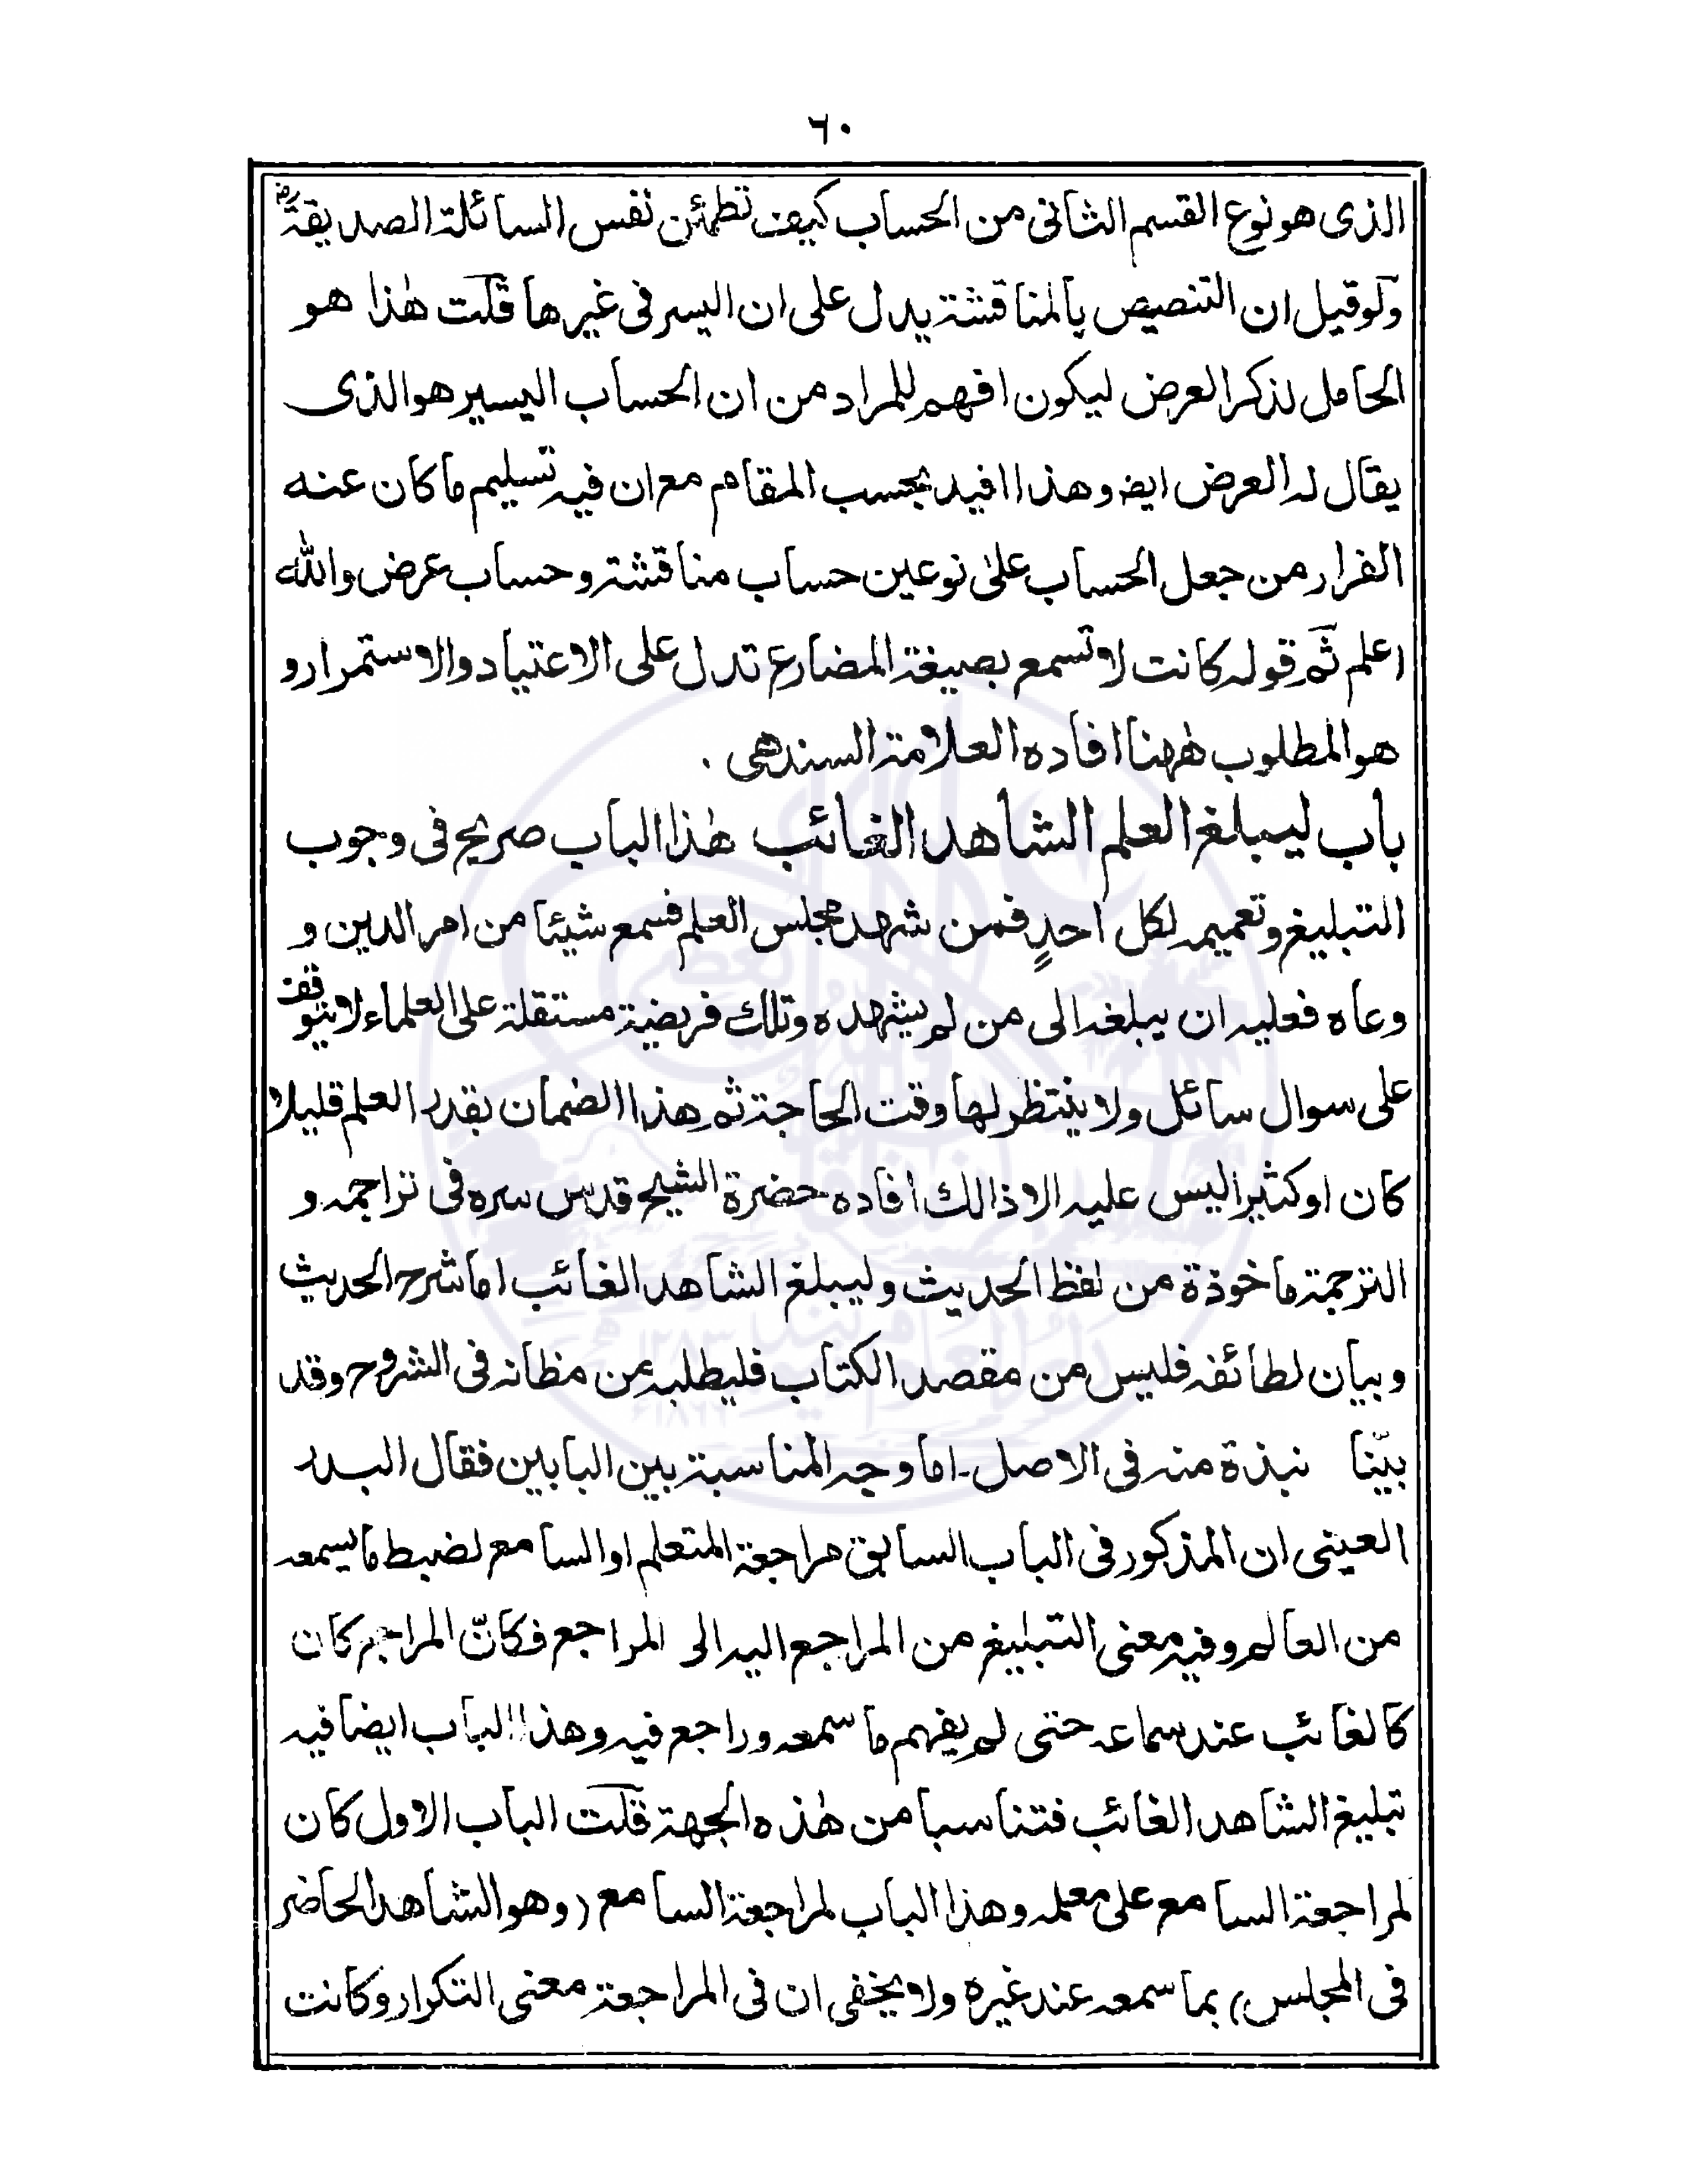 ٦٠
الذى هو نوع القسم الثانى من الحساب كيف تطمئن نفس السائلة الصديقةؓ
ولو قيل ان التنصيص بالمناقشة يدل على ان اليسر فى غيرها قلت هٰذا هو
الحامل لذكر العرض ليكون افهم للمراد من ان الحساب اليسير هو الذى
يقال له العرض ايضو هذا افيد بحسب المقام مع ان فيه تسليم ما كان عنه
الفرار من جعل الحساب علىٰ نوعين حساب مناقشة وحساب عرض والله
اعلم ثم قوله كانت لا تسمع بصيغة المضارع تدل على الاعتياد والاستمرار و
هو المطلوب هٰهنا افاده العلامة السندهى .
باب ليبلغ العلم الشاهد الغائب هٰذا الباب صريح فى وجوب
التبليغ وتعميمه لكل احدٍ فمن شهد مجلس العلم فسمع شيئا من امر الدين و
وعاه فعليه ان يبلغه الى من لم يشهده وتلك فريضة مستقلة على العلماء لا يتوقف
على سوال سائل ولا ينتظر لها وقت الحاجة ثم هذا الضمان بقدر العلم قليلا
كان او كثيرا ليس عليه الا ذالك افاده حضرة الشيخ قدس سره فى تراجمه و
الترجمة ماخوذة من لفظ الحديث وليبلغ الشاهد الغائب اما شرح الحديث
وبيان لطائفه فليس من مقصد الكتاب فليطلبه من مظانه فى الشروح وقد
بيّنا نبذة منه فى الاصل۔ اما وجه المناسبة بين البابين فقال البدر
العينى ان المذكور فى الباب السابق مراجعة المتعلم او السامع لضبط ما يسمعه
من العالم وفيه معنى التبليغ من المراجع اليه الى المراجع فكانّ المراجع كان
كالغائب عند سماعه حتى لم يفهم ما سمعه وراجع فيه وهذا الباب ايضا فيه
تبليغ الشاهد الغائب فتناسبا من هٰذه الجهة قلت الباب الاول كان
لمراجعة السامع على معلمه وهذا الباب لمراجعة السامع (وهو الشاهد الحاضر
فى المجلس) بما سمعه عند غيره ولا يخفى ان فى المراجعة معنى التكرار وكانت